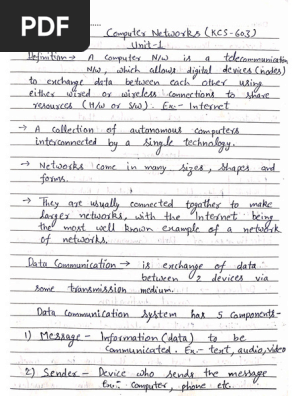 PDF
Computer Networks (KCS-603)
Unit-1
Definition → A computer N/w is a telecommunication
N/w, which allows digital devices (nodes)
to exchange data between each other using
either wired or wireless connections to share
resources (H/w or S/w). Ex:- Internet
→ A collection of autonomous computers
interconnected by a single technology.
→ Networks come in many sizes, shapes and
forms.
→ They are usually connected together to make
larger networks, with the Internet being
the most well known example of a network
of networks.
Data Communication → is exchange of data
between 2 devices via
some transmission medium.
Data communication system has 5 components-
1) Message - Information (data) to be
communicated. Ex:- text, audio, video
2) Sender - Device who sends the message
Ex:- computer, phone etc.